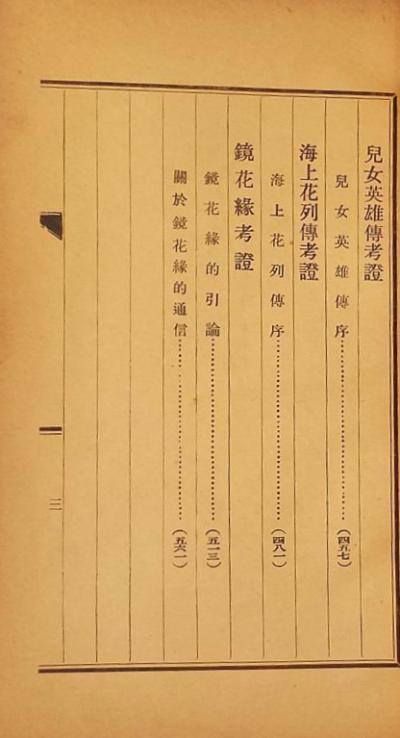 兒女英雄傳考證
兒女英雄傳序……………………（四五七）
海上花列傳考證
海上花列傳序……………………（四八一）
鏡花緣考證
鏡花緣的引論……………………（五一三）
關於鏡花緣的通信……………………（五六一）
三